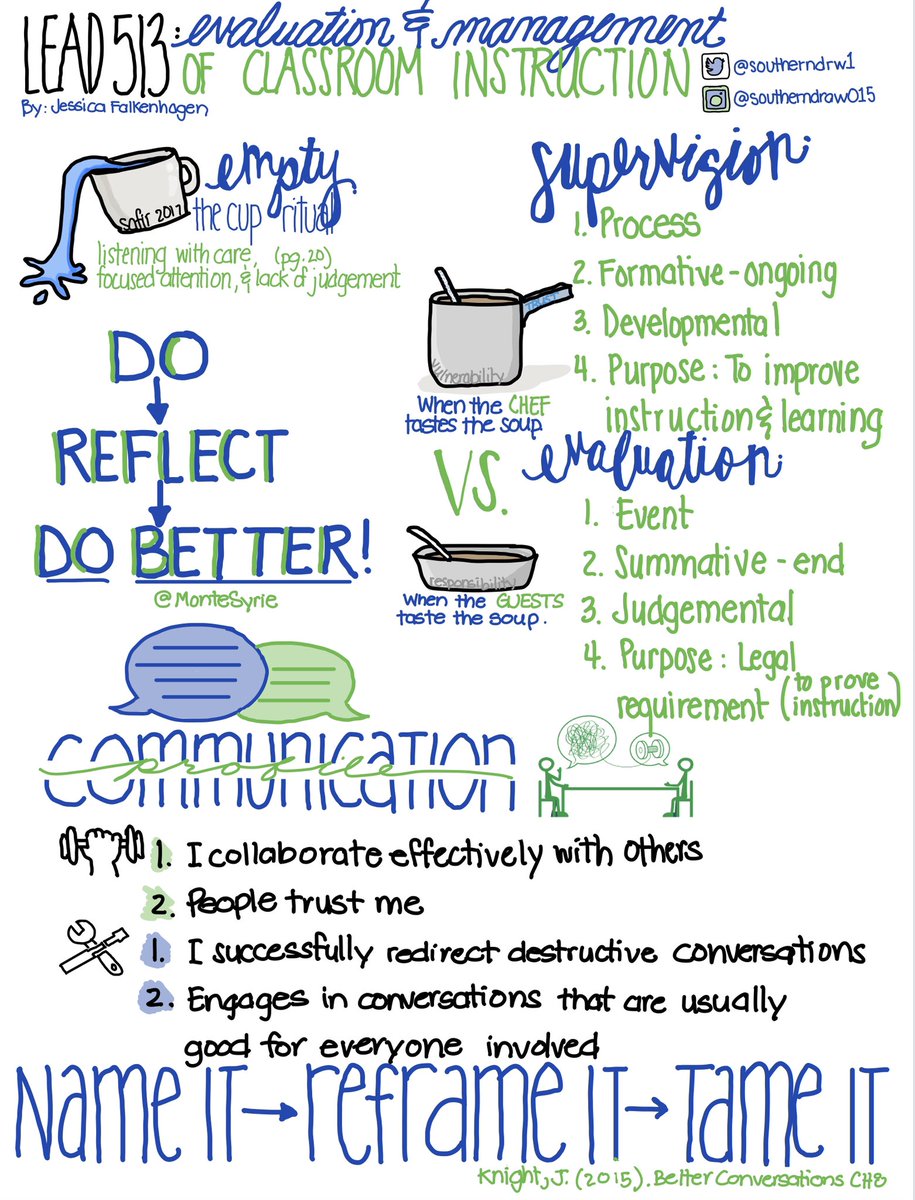 LEAD 513: evaluation & management
OF CLASSROOM INSTRUCTION
By: Jessica Falkenhagen
@southerndrw1
@southerndraw015
safir 2017
empty
the cup ritual
listening with care, (pg. 20)
focused attention, & lack of judgement
DO
REFLECT
DO BETTER!
@MonteSyrie
supervision:
1. Process
2. Formative - ongoing
3. Developmental
4. Purpose: To improve
instruction & learning
TRUST
vulnerability
When the CHEF
tastes the soup
VS.
evaluation:
1. Event
2. Summative - end
3. Judgemental
4. Purpose: Legal
requirement (to prove
instruction)
responsibility
When the GUESTS
taste the soup.
communication
profile
1. I collaborate effectively with others
2. People trust me
1. I successfully redirect destructive conversations
2. Engages in conversations that are usually
good for everyone involved
Name IT → reframe IT → Tame IT
Knight, J. (2015). Better Conversations CH8